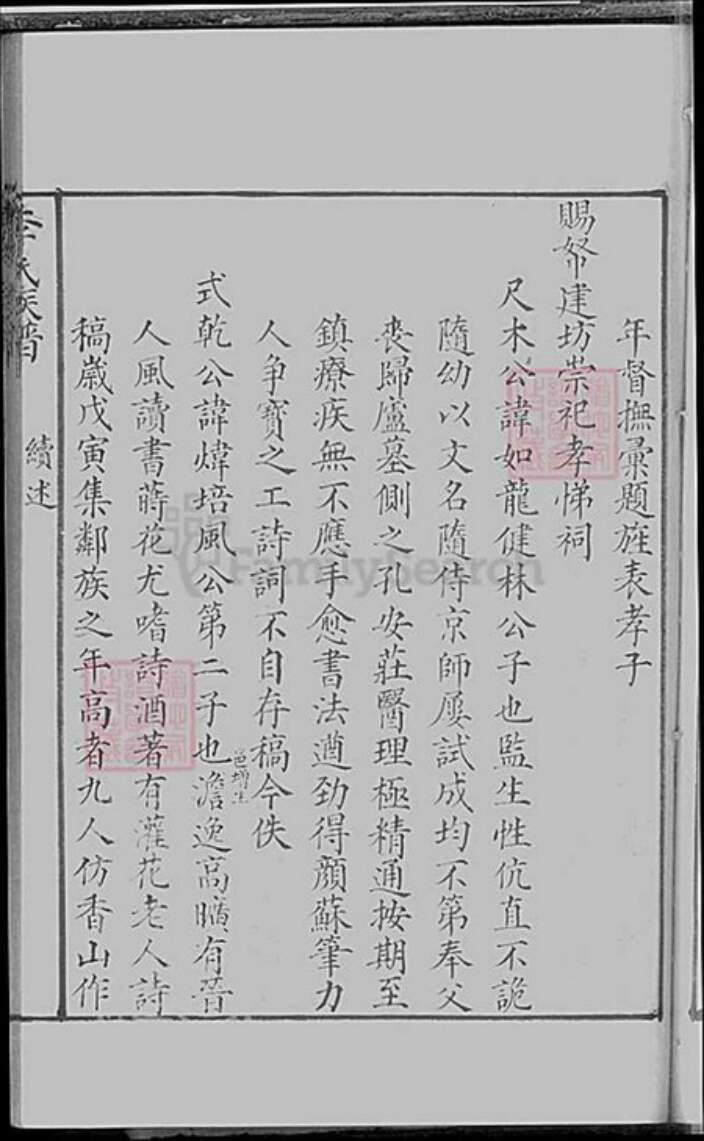 年督撫彙題旌表孝子
賜帑建坊崇祀孝悌祠
尺木公諱如龍健林公子也監生性伉直不詭
隨幼以文名隨侍京師屢試成均不第奉父
喪歸廬墓側之孔安莊醫理極精通按期至
鎮療疾無不應手愈書法遒勁得顏蘇筆力
人争寶之工詩詞不自存稿今佚
式乾公諱煒培風公第二子也邑增生澹逸高曠有晉
人風讀書蒔花尤嗜詩酒著有灌花老人詩
稿歲戊寅集鄰族之年高者九人仿香山作
氏族譜
續述
FamilySearch